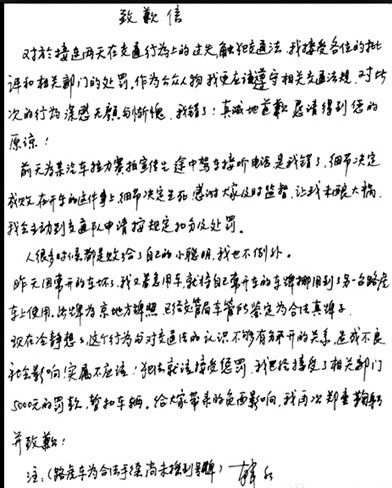 致歉信
对於接连两天在交通行为上的过失,触犯交通法,我接受各位的批
评和相关部门的处罚.作为公众人物我更应该遵守相关交通法规,对此
次的行为深感无颜与惭愧.我错了!真诚地道歉恳请得到您的
原谅!
前天为某汽车接力赛拍宣传片途中驾车接听电话是我错了,细节决定
成败.在开车的这件事上,细节决定生死.感谢大家及时监督,让我未酿大祸.
我会主动到交通队申请按规定扣分及处罚.
人很多时候都是败给了自己的小聪明,我也不例外.
昨天因常开的车坏了,我又着急用车,就将自己常开车的车牌挪用到了另一台路虎
车上使用.此牌为京地方牌照,已经交管局车管所鉴定为合法真牌子.
现在冷静想了,这个行为与对交通法的认识不够有分不开的关系,造成不良
社会影响!实属不应该!犯法就该接受惩罚,我已经接受了相关部门
5000元的罚款,暂扣车辆.给大家带来的负面影响,我再次郑重鞠躬
并致歉!
注:(路虎车为合法手续尚未换到号牌)